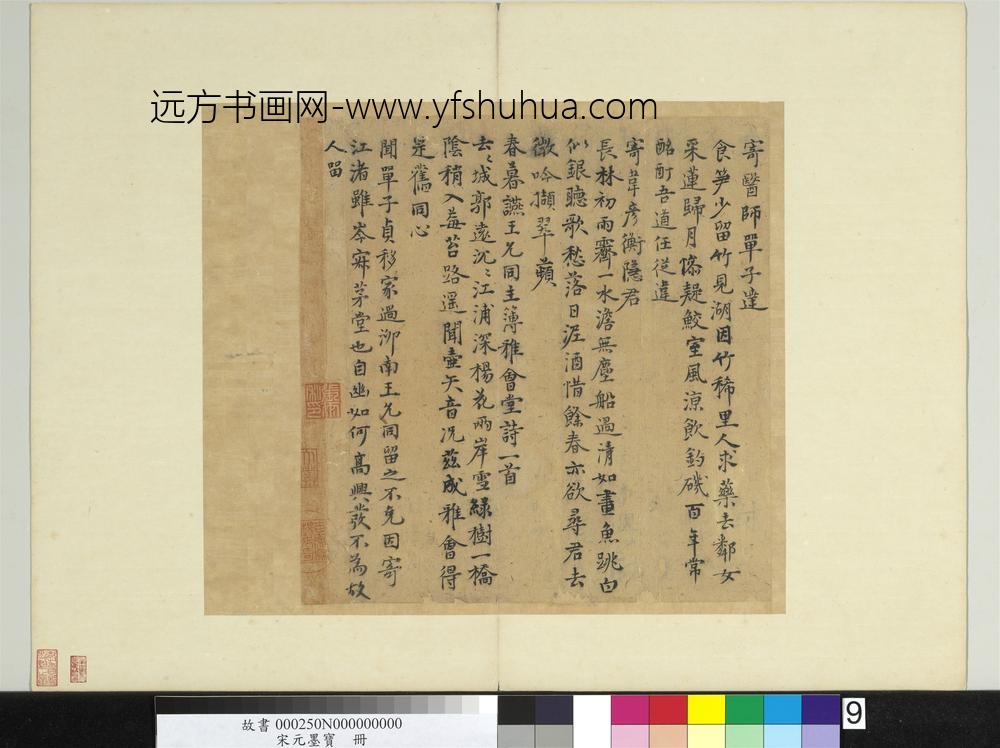 远方书画网-www.yfshuhua.com
寄醫師單子建
食笋少留竹見湖因竹稀里人求藥去鄰女
采蓮歸月滌疑鮫室風涼飲釣磯百年常
酩酊吾道任從違
寄韋彥衡隱君
長林初雨霽一水澹無塵船過清如畫魚跳白
似銀聽歌愁落日泥酒惜餘春亦欲尋君去
微吟擷翠蘋
春暮讌王允同主簿雅會堂詩一首
去〻城郭遠沉〻江浦深楊花兩岸雪綠樹一橋
陰稍入莓苔路遥聞壷矢音况茲成雅會得
是舊同心
聞單子貞移家過泖南王允同留之不克因寄
江渚雖岑寂茅堂也自幽如何髙興發不為故
人留
9
故書 000250N000000000
宋元墨寶 冊